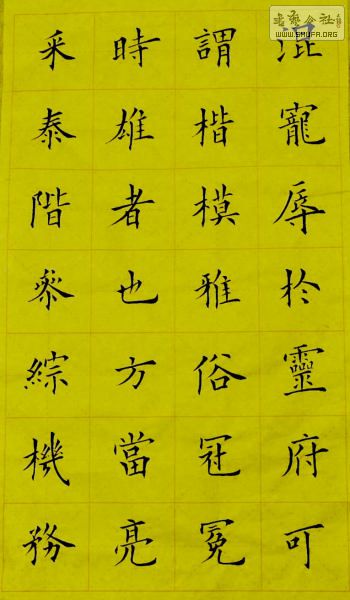 混寵辱於靈府可
謂楷模雅俗冠冕
時雄者也方當亮
采泰階參綜機務
WWW.SHUFA.ORG